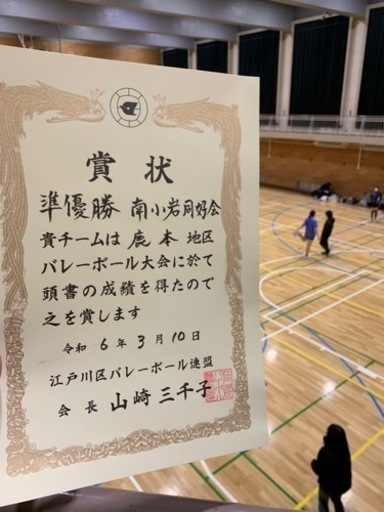 賞状
準優勝 南小岩同好会
貴チームは鹿本地区
バレーボール大会に於て
頭書の成績を得たので
之を賞します
令和6年3月10日
江戸川区バレーボール連盟
会長 山崎三千子